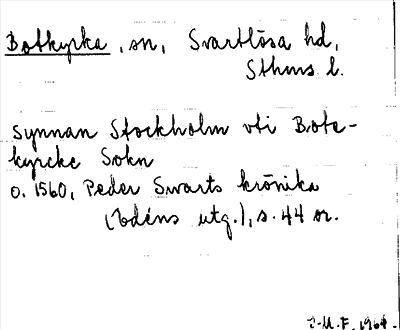 Botkyrka, sn, Svartlösa hd,
Sthms l.
synnan Stockholm vti Bota-
kyrcke Sokn
o. 1560, Peder Swarts krönika
(Nodéns utg.), s. 44 or.
J-M.F. 1964.